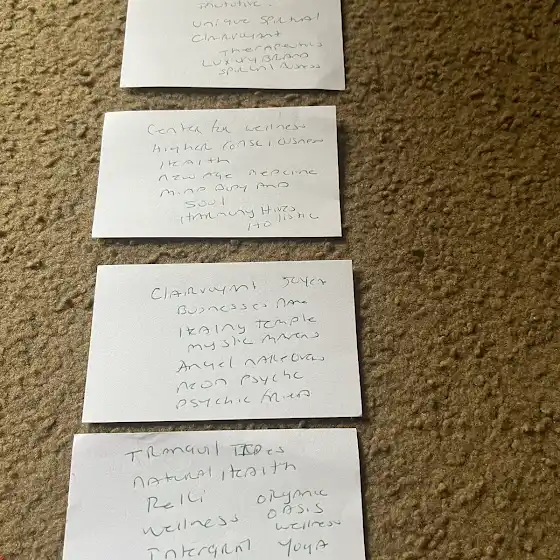 intuitive.
unique spiritual
Clairvoyant
Therapeutus
Luxury Brand
spiritual Business
Center for wellness
Higher consciousness
Health
New Age Medicine
Mind Body And
Soul
Healing Hives
Holistic
Clairvoyant
Businesses name
Healing Temple
mystic mavens
Angel makeovers
neon psychic
psychic
Tranquil Tides
natural Health
Reiki organic
wellness oasis
wellness
Integral Yoga